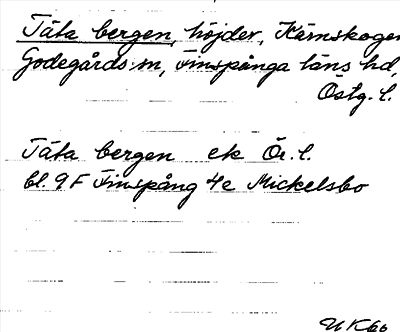 Täta bergen, höjder, Kärnskogen
Godegårds sn, Finspånga läns hd,
Östg. l.
Täta bergen ek Ör. l.
bl. 9F Finspång 4e Mickelsbo